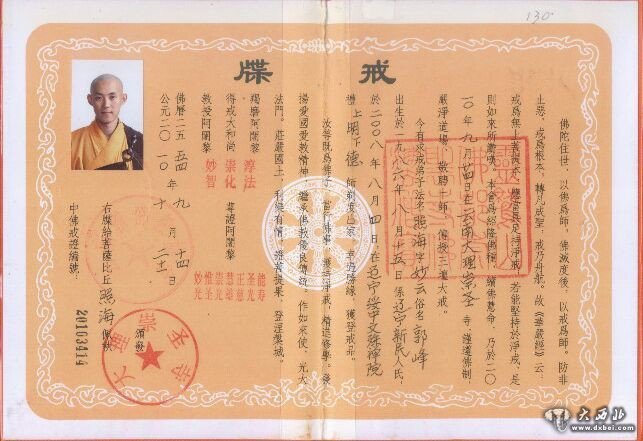 130
戒牒
佛陀住世，以佛爲師。佛滅度後，以戒爲師。防非
止惡，戒爲根本，轉凡成聖，戒乃舟航。故《華嚴經》云：
戒爲無上菩提本，應當具足持淨戒，若能堅持於淨戒，是
則如來所讚嘆。本會爲紹隆佛種，續佛慧命，乃於二〇
一〇年九月十四日在云南大理崇圣寺，謹遵佛制
嚴淨道場，敬聘十師，傳授三壇大戒。
今有求戒弟子法名照海字妙云俗名郭峰
出生於一九八六年八月十五日係辽宁新民人氏，
於二〇〇八年八月四日，在辽宁绥中文殊禪院
禮上明下德師剃度出家，幸遇勝緣，獲登戒品。
汝等既爲佛子，當行佛事，護持淨戒，精進修學。發
揚愛國愛教精神，繼承佛教優良傳統，作如來使，光大
法門。莊嚴國土，利樂有情，維菩提果，登涅槃城。
得戒大和尚 崇化
羯磨阿闍黎 淳法
教授阿闍黎 妙智
尊證阿闍黎
能寿
圣光
正意
慧雄
崇圣
惟圣
妙光
佛曆二五五四年九月十四日
公元二〇一〇年十月二十一日
右牒給菩薩比丘照海佩執
頒發
中佛戒證編號：
20103414
大理崇圣寺
大西北
www.dxbei.com